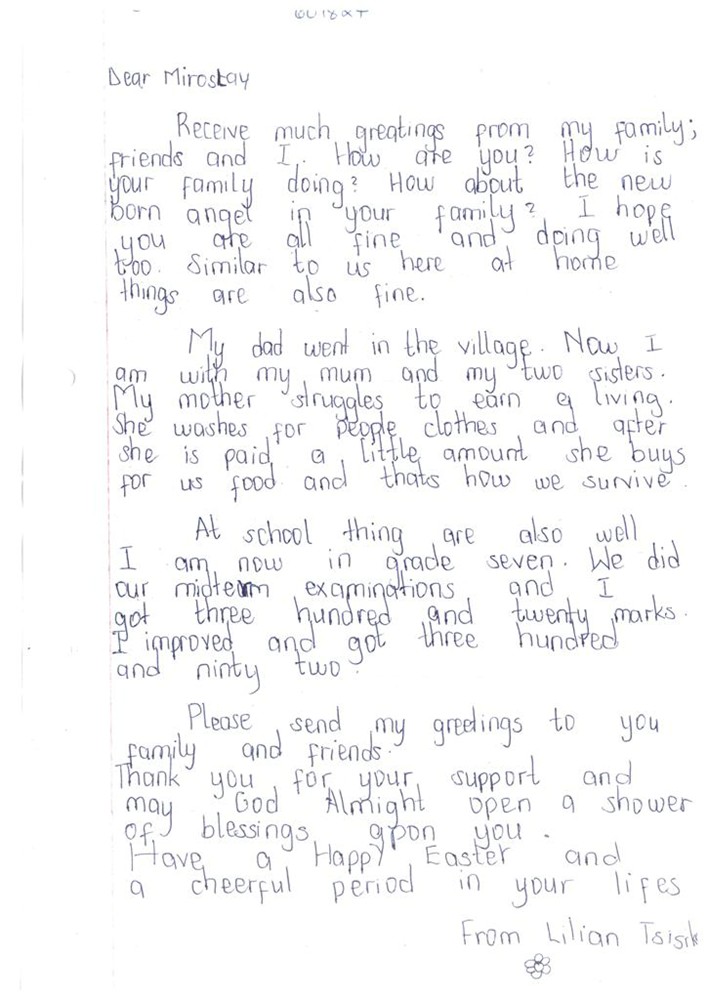 Dear Miroslav
Receive much greatings from my family;
friends and I. How are you? How is
your family doing? How about the new
born angel in your family? I hope
you are all fine and doing well
too. Similar to us here at home
things are also fine.
My dad went in the village. Now I
am with my mum and my two sisters.
My mother struggles to earn a living.
She washes for people clothes and after
she is paid a little amount she buys
for us food and thats how we survive.
At school thing are also well
I am now in grade seven. We did
our midterm examinations and I
got three hundred and twenty marks.
I improved and got three hundred
and ninty two.
Please send my greetings to you
family and friends.
Thank you for your support and
may God Almight open a shower
of blessings upon you.
Have a Happy Easter and
a cheerful period in your lifes
From Lilian